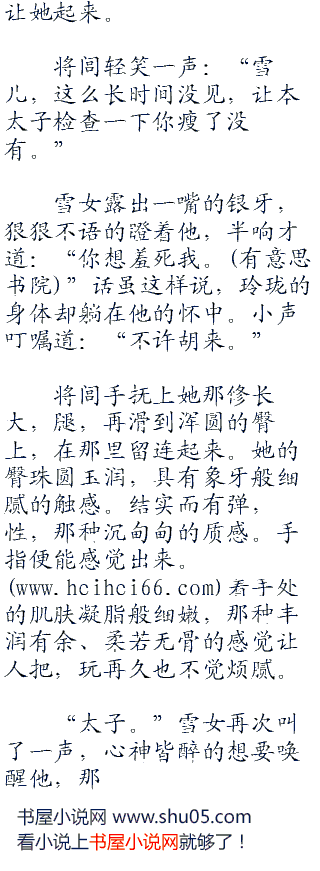 让她起来。
将闾轻笑一声：“雪
儿，这么长时间没见，让本
太子检查一下你瘦了没
有。”
雪女露出一嘴的银牙，
狠狠不语的瞪着他，半响才
道：“你想羞死我。(有意思
书院)”话虽这样说，玲珑的
身体却躺在他的怀中。小声
叮嘱道：“不许胡来。”
将闾手抚上她那修长
大，腿，再滑到浑圆的臀
上，在那里留连起来。她的
臀珠圆玉润，具有象牙般细
腻的触感。结实而有弹，
性，那种沉甸甸的质感。手
指便能感觉出来。
(www.hcihci66.com)着手处
的肌肤凝脂般细嫩，那种丰
润有余、柔若无骨的感觉让
人把，玩再久也不觉烦腻。
“太子。”雪女再次叫
了一声，心神皆醉的想要唤
醒他，那
书屋小说网 www.shu05.com
看小说上书屋小说网就够了！